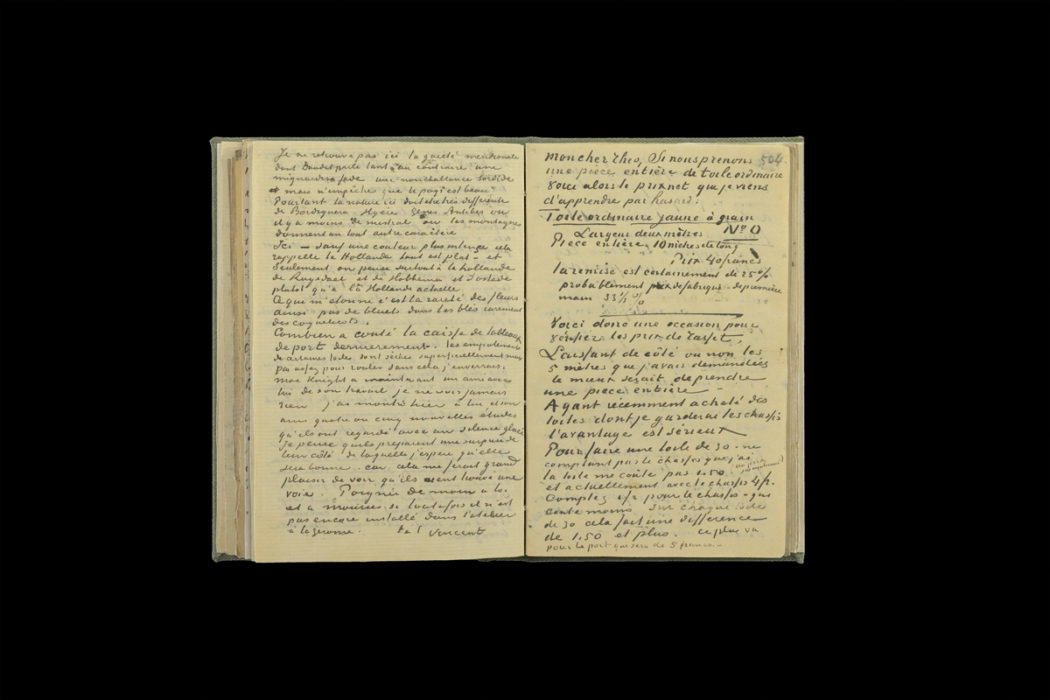 Je ne retrouve pas ici la gaieté méridionale
dont Daudet parle tant au contraire une
mignardise fade une nonchalance sordide
mais n'empêche que le pays est beau
Pourtant la nature ici doit être très différente
de Bordighera Hyères Gênes Antibes où
il y a moins de mistral où les montagnes
donnent un tout autre caractère
Ici – sauf une couleur plus intense cela
rappelle la Hollande tout est plat – et
seulement on pense surtout à la Hollande
de Ruysdael et de Hobbema et d'Ostade
plutôt qu'à la Hollande actuelle
Ce qui m'étonne c'est la rareté des fleurs
ainsi pas de bluets dans les blés rarement
des coquelicots.
Combien a couté la caisse de tableaux
de port dernièrement. les empatements
de dernières toiles sont séchés superficiellement mais
pas assez pour rouler sans cela j'enverrais.
Mac Knight a maintenant un ami avec
lui de son travail je ne vois jamais
rien j'ai montré hier à lui et son
ami quatre ou cinq nouvelles études
qu'ils ont regardé avec un silence glacé
Je pense qu'ils préparent une surprise de
leur côté de laquelle j'espère qu'elle
sera bonne. car cela me ferait grand
plaisir de voir qu'ils aient trouvé une
voie. Poignée de main à toi
et à mourier si toutefois il n'est
pas encore installé dans l'atelier
à la gerome. t. à t. Vincent
mon cher Theo, Si nous prenons 504
une pièce entière de toile ordinaire
voici alors le prix net que je viens
d'apprendre par hasard.
Toile ordinaire jaune à grain
Largeur deux mètres No 0
Pièce entière, 10 mètres de long
Prix 40 francs
la remise est certainement de 25 %
probablement prix de fabrique – de première
main 33 1/3 %
Voici donc une occasion pour
vérifier les prix de Tasset.
Laissant de côté ou non les
5 mètres que j'avais demandées
le mieux serait de prendre
une pièce entière –
Ayant récemment acheté des
toiles dont je garderai les chassis
l'avantage est sérieux
Pour faire une toile de 30 – ne
comptant pas le chassis que j'ai
la toile me coûte pas 1.50
et actuellement avec le chassis 4 fr.
Comptez 1 fr pour le chassis – qui
coute moins sur chaque toile
de 30 cela fait une différence
de 1.50 et plus. ce plus va
pour le port qui sera de 5 francs –